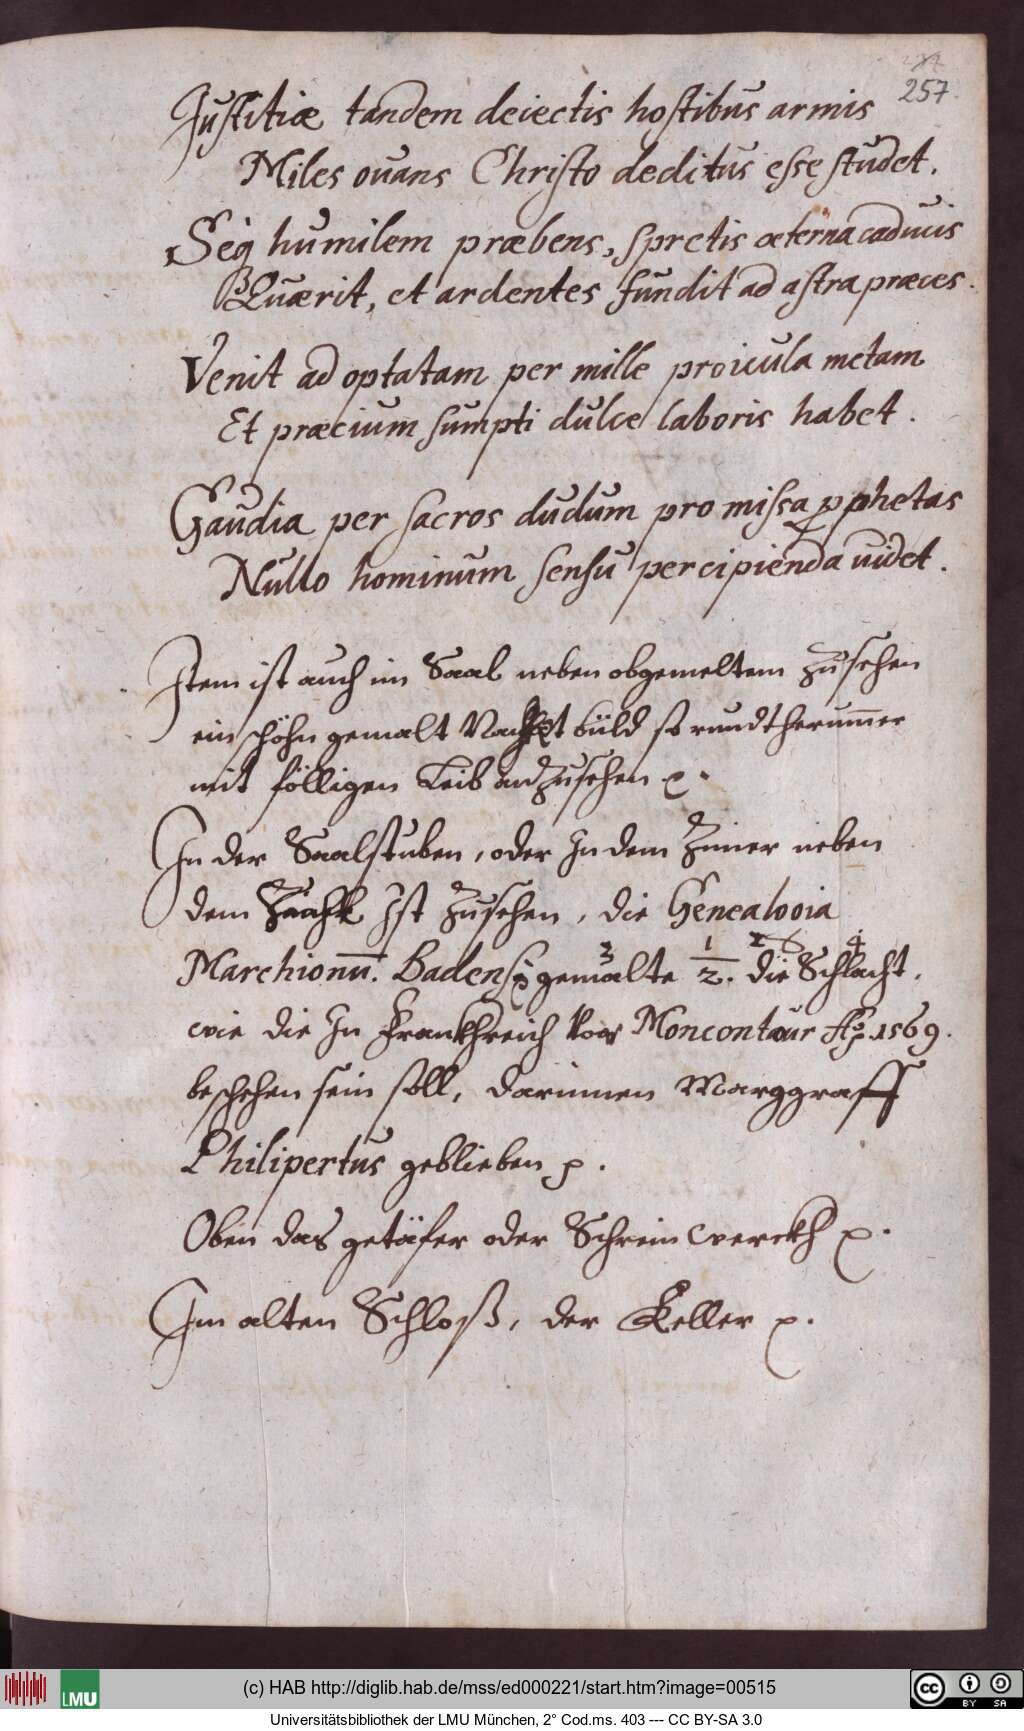 257
Justitiæ tandem deiectis hostibus armis
Miles ouans Christo deditus esse studet.
Seq humilem præbens, spretis æterna caducis
Quærit, et ardentes fundit ad astra præces.
Venit ad optatam per mille proicula metam
Et præcium sumpti dulce laboris habet.
Gaudia per sacros dudum promissa pphetas
Nullo hominum sensu percipienda uidet.
Item ist auch im Saal neben obgemeltem zusehen
ein schöhn gemalt Nackhet büld so rundtherummer
mit fölligen Leib anzusehen
In der Saalstuben, oder In dem Zimer neben
dem Ist zusehen, die Genealooia
Marchionũ. Badens gemalte 1/2. die Schlacht,
3 4
wie die In Frankhreich vor Moncontour Aº. 1569.
beschehen sein soll, darinnen Marggraff
Philipertus geblieben
Oben das getäfer oder Schreinwerckh
Im alten Schloß, der Keller
LMU
(c) HAB http://diglib.hab.de/mss/ed000221/start.htm?image=00515
cc BY SA
Universitätsbibliothek der LMU München, 2° Cod.ms. 403 --- CC BY-SA 3.0